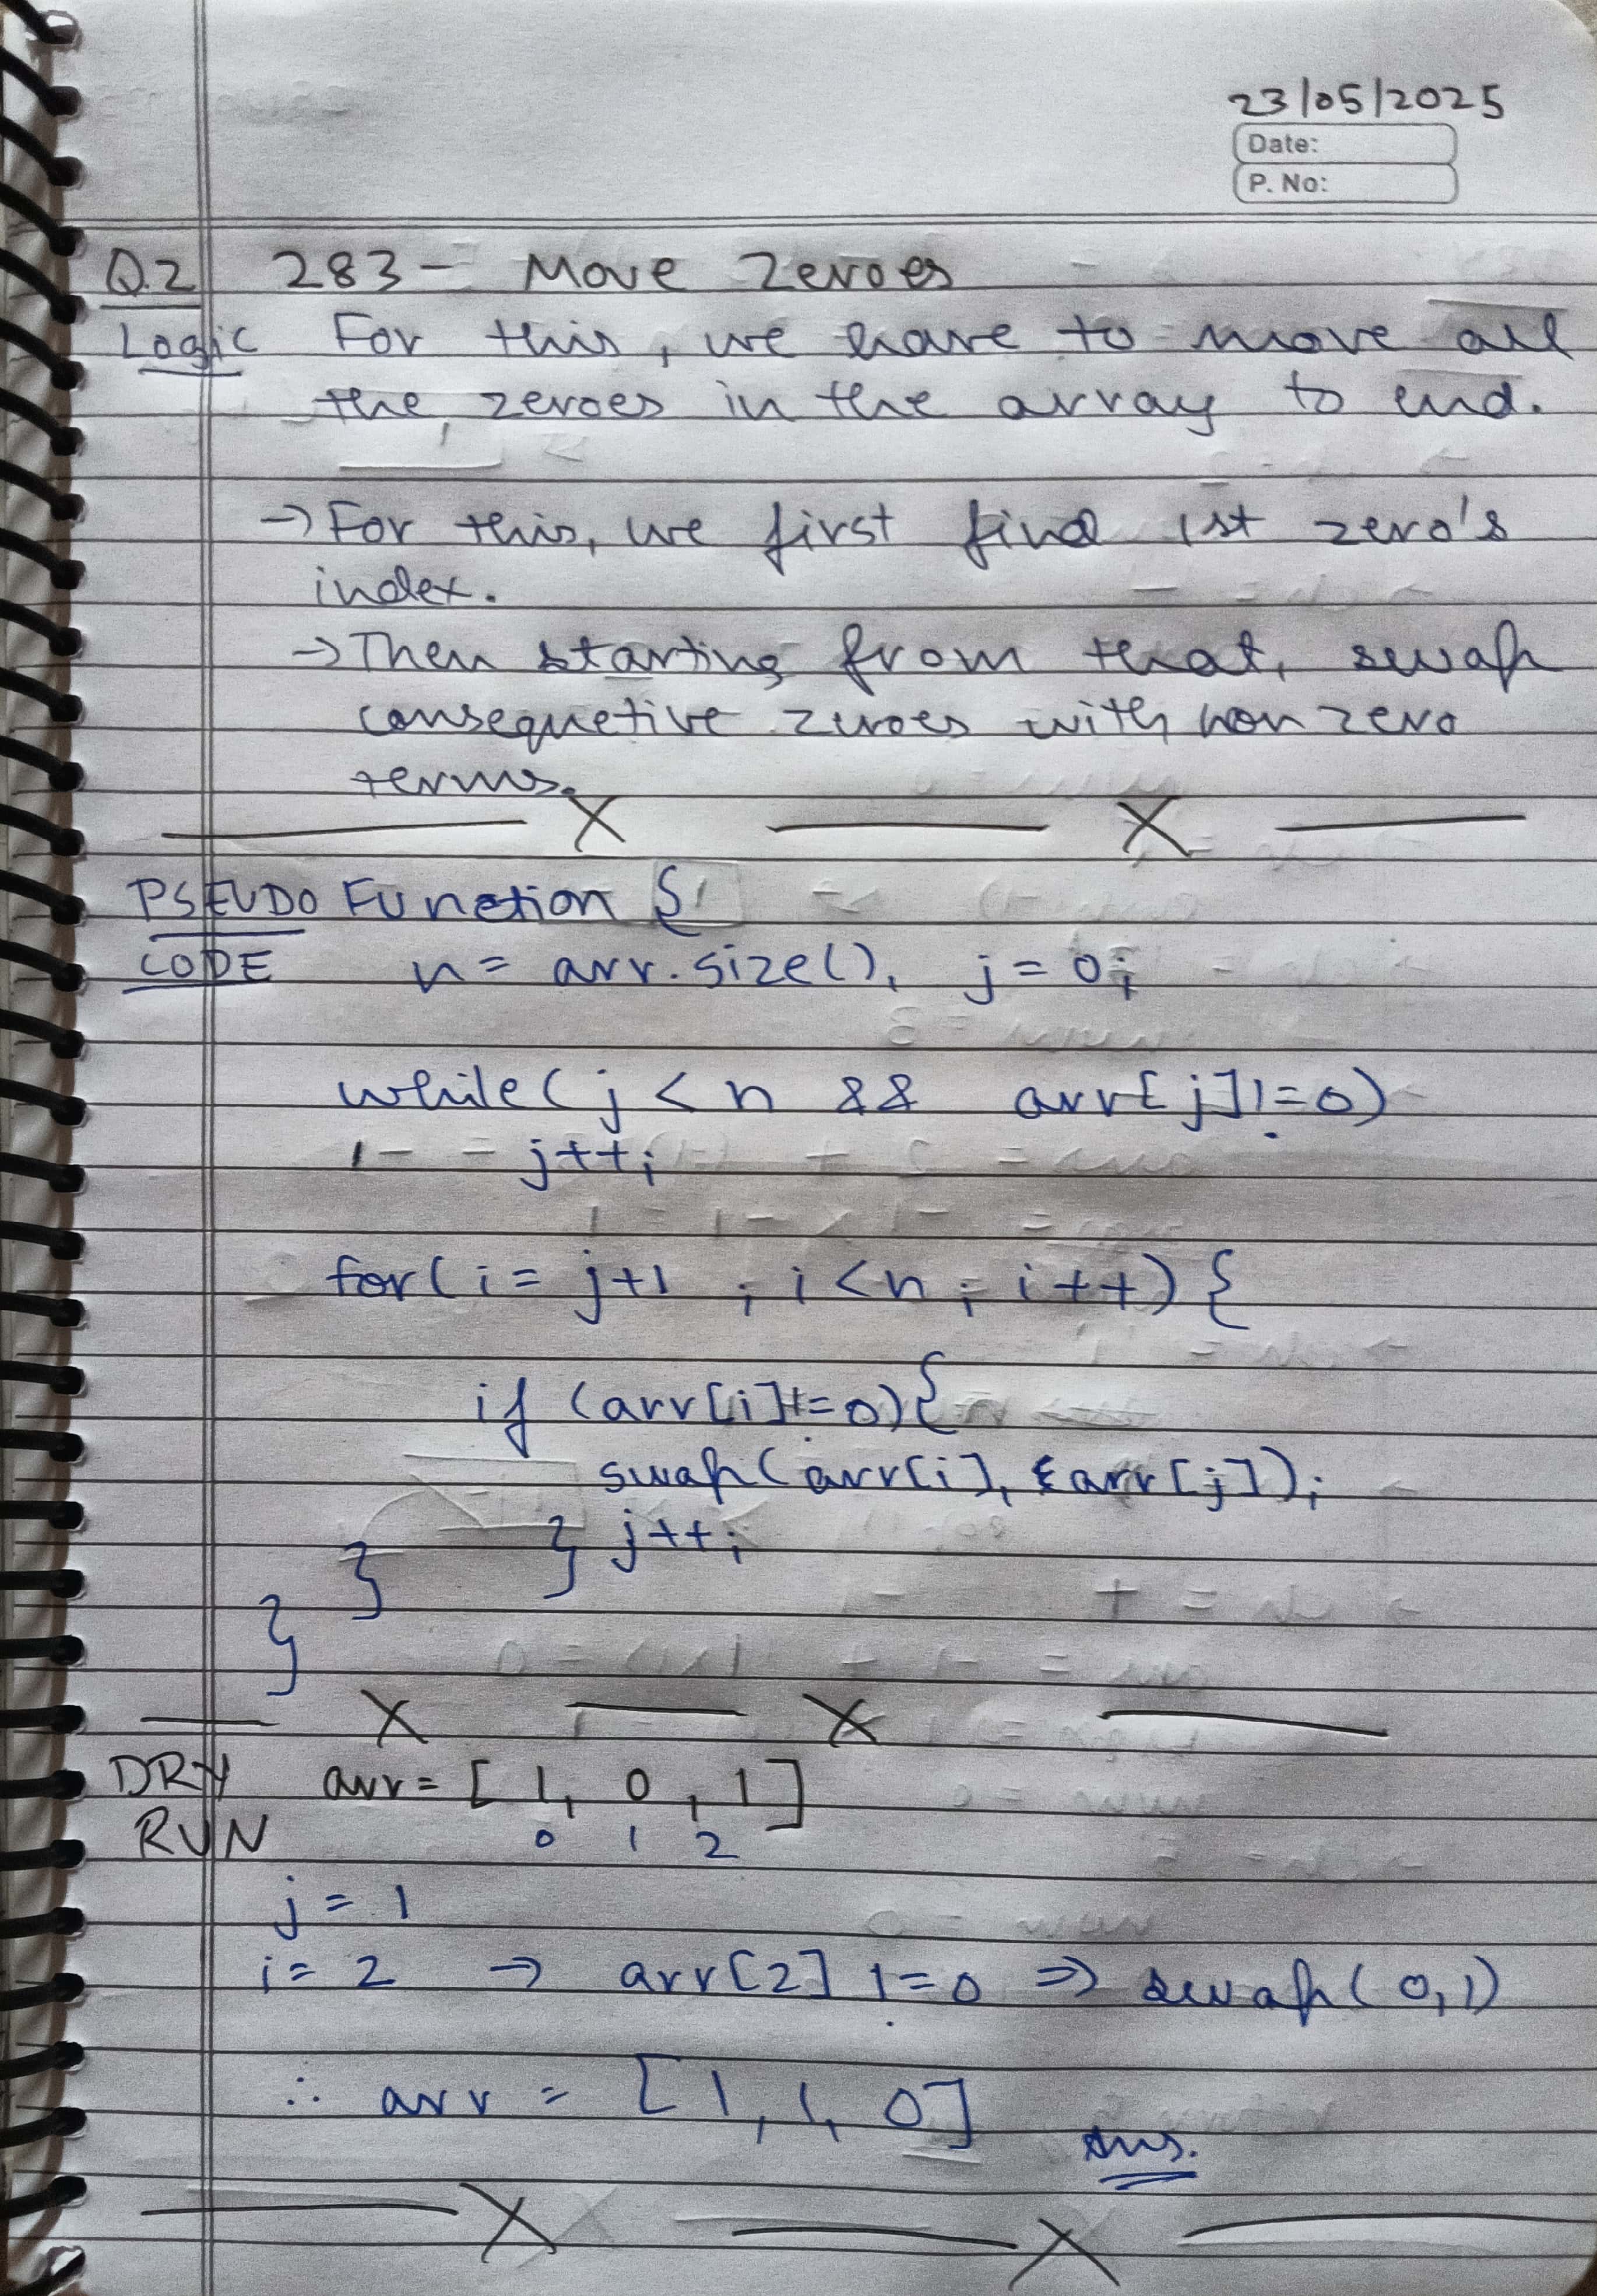 23/05/2025
Date:
P. No:
Q.2 283 - Move Zeroes
Logic For this, we have to move all
the zeroes in the array to end.
→ For this, we first find 1st zero's
index.
→ Then starting from that, swap
consequetive zeroes with non zero
terms.
X X
PSEUDO Function {
CODE n = arr.size(), j = 0;
while(j < n && arr[j]!=0)
j++;
for(i = j+1 ; i<n ; i++) {
if (arr[i]!=0){
swap(arr[i], arr[j]);
} j++;
}
}
X X
DRY arr = [ 1, 0, 1]
RUN 0 1 2
j = 1
i = 2 → arr[2] != 0 ⇒ swap(0,1)
∴ arr = [1, 1, 0]
Ans.
X X